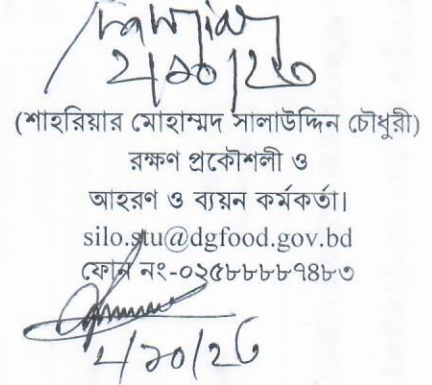 ২/১০/২৩
(শাহরিয়ার মোহাম্মদ সালাউদ্দিন চৌধুরী)
রক্ষণ প্রকৌশলী ও
আহরণ ও ব্যয়ন কর্মকর্তা।
silo.stu@dgfood.gov.bd
ফোন নং-০২৫৮৮৮৮৭৪৮৩
২/১০/২৩